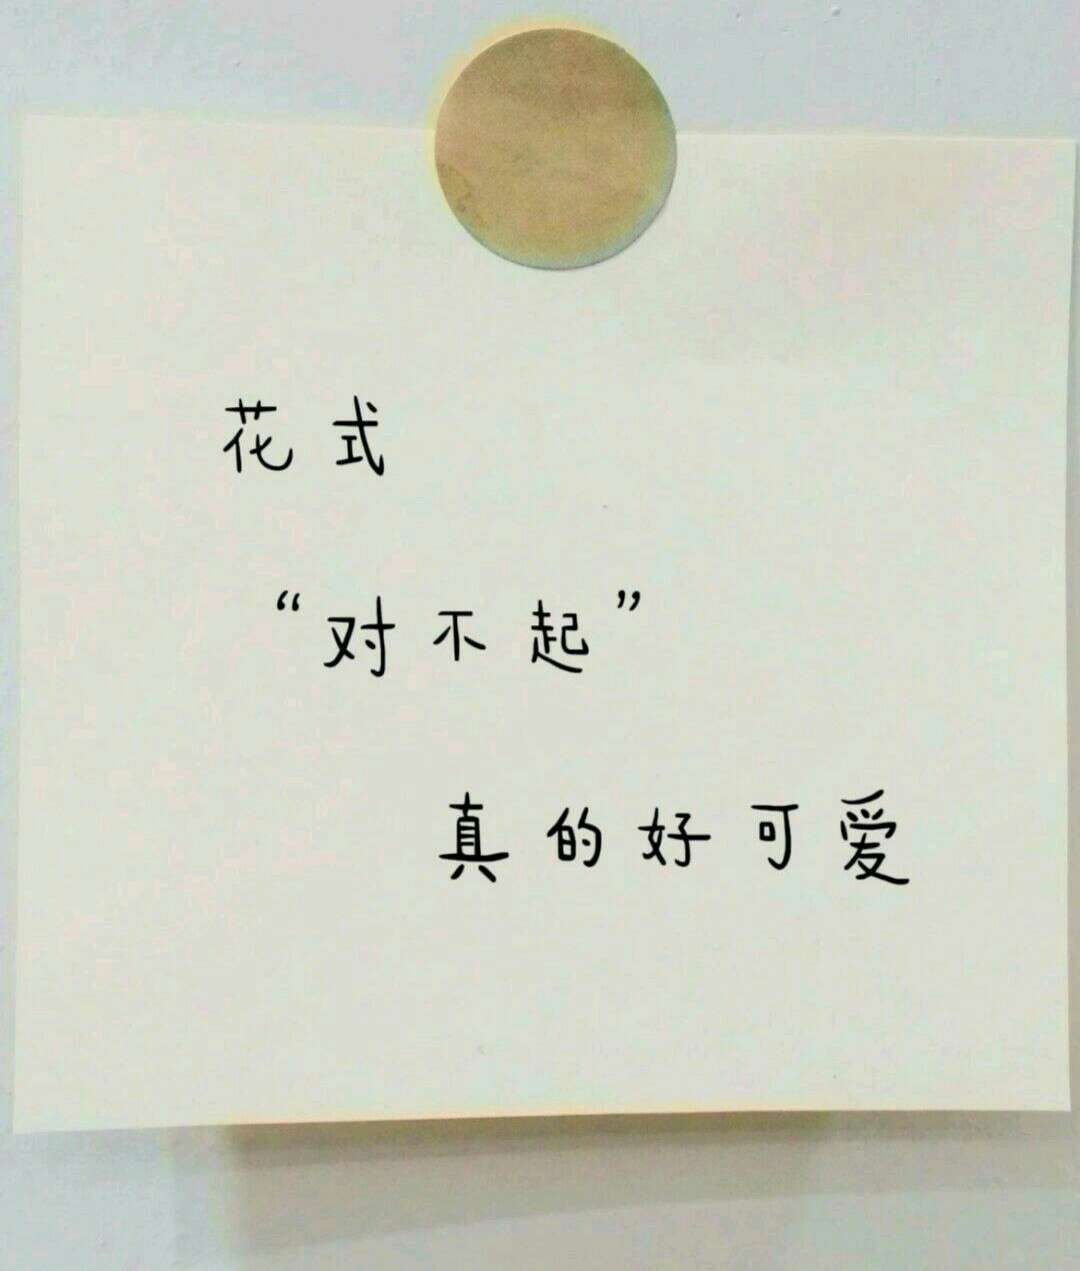 花式
“对不起”
真的好可爱